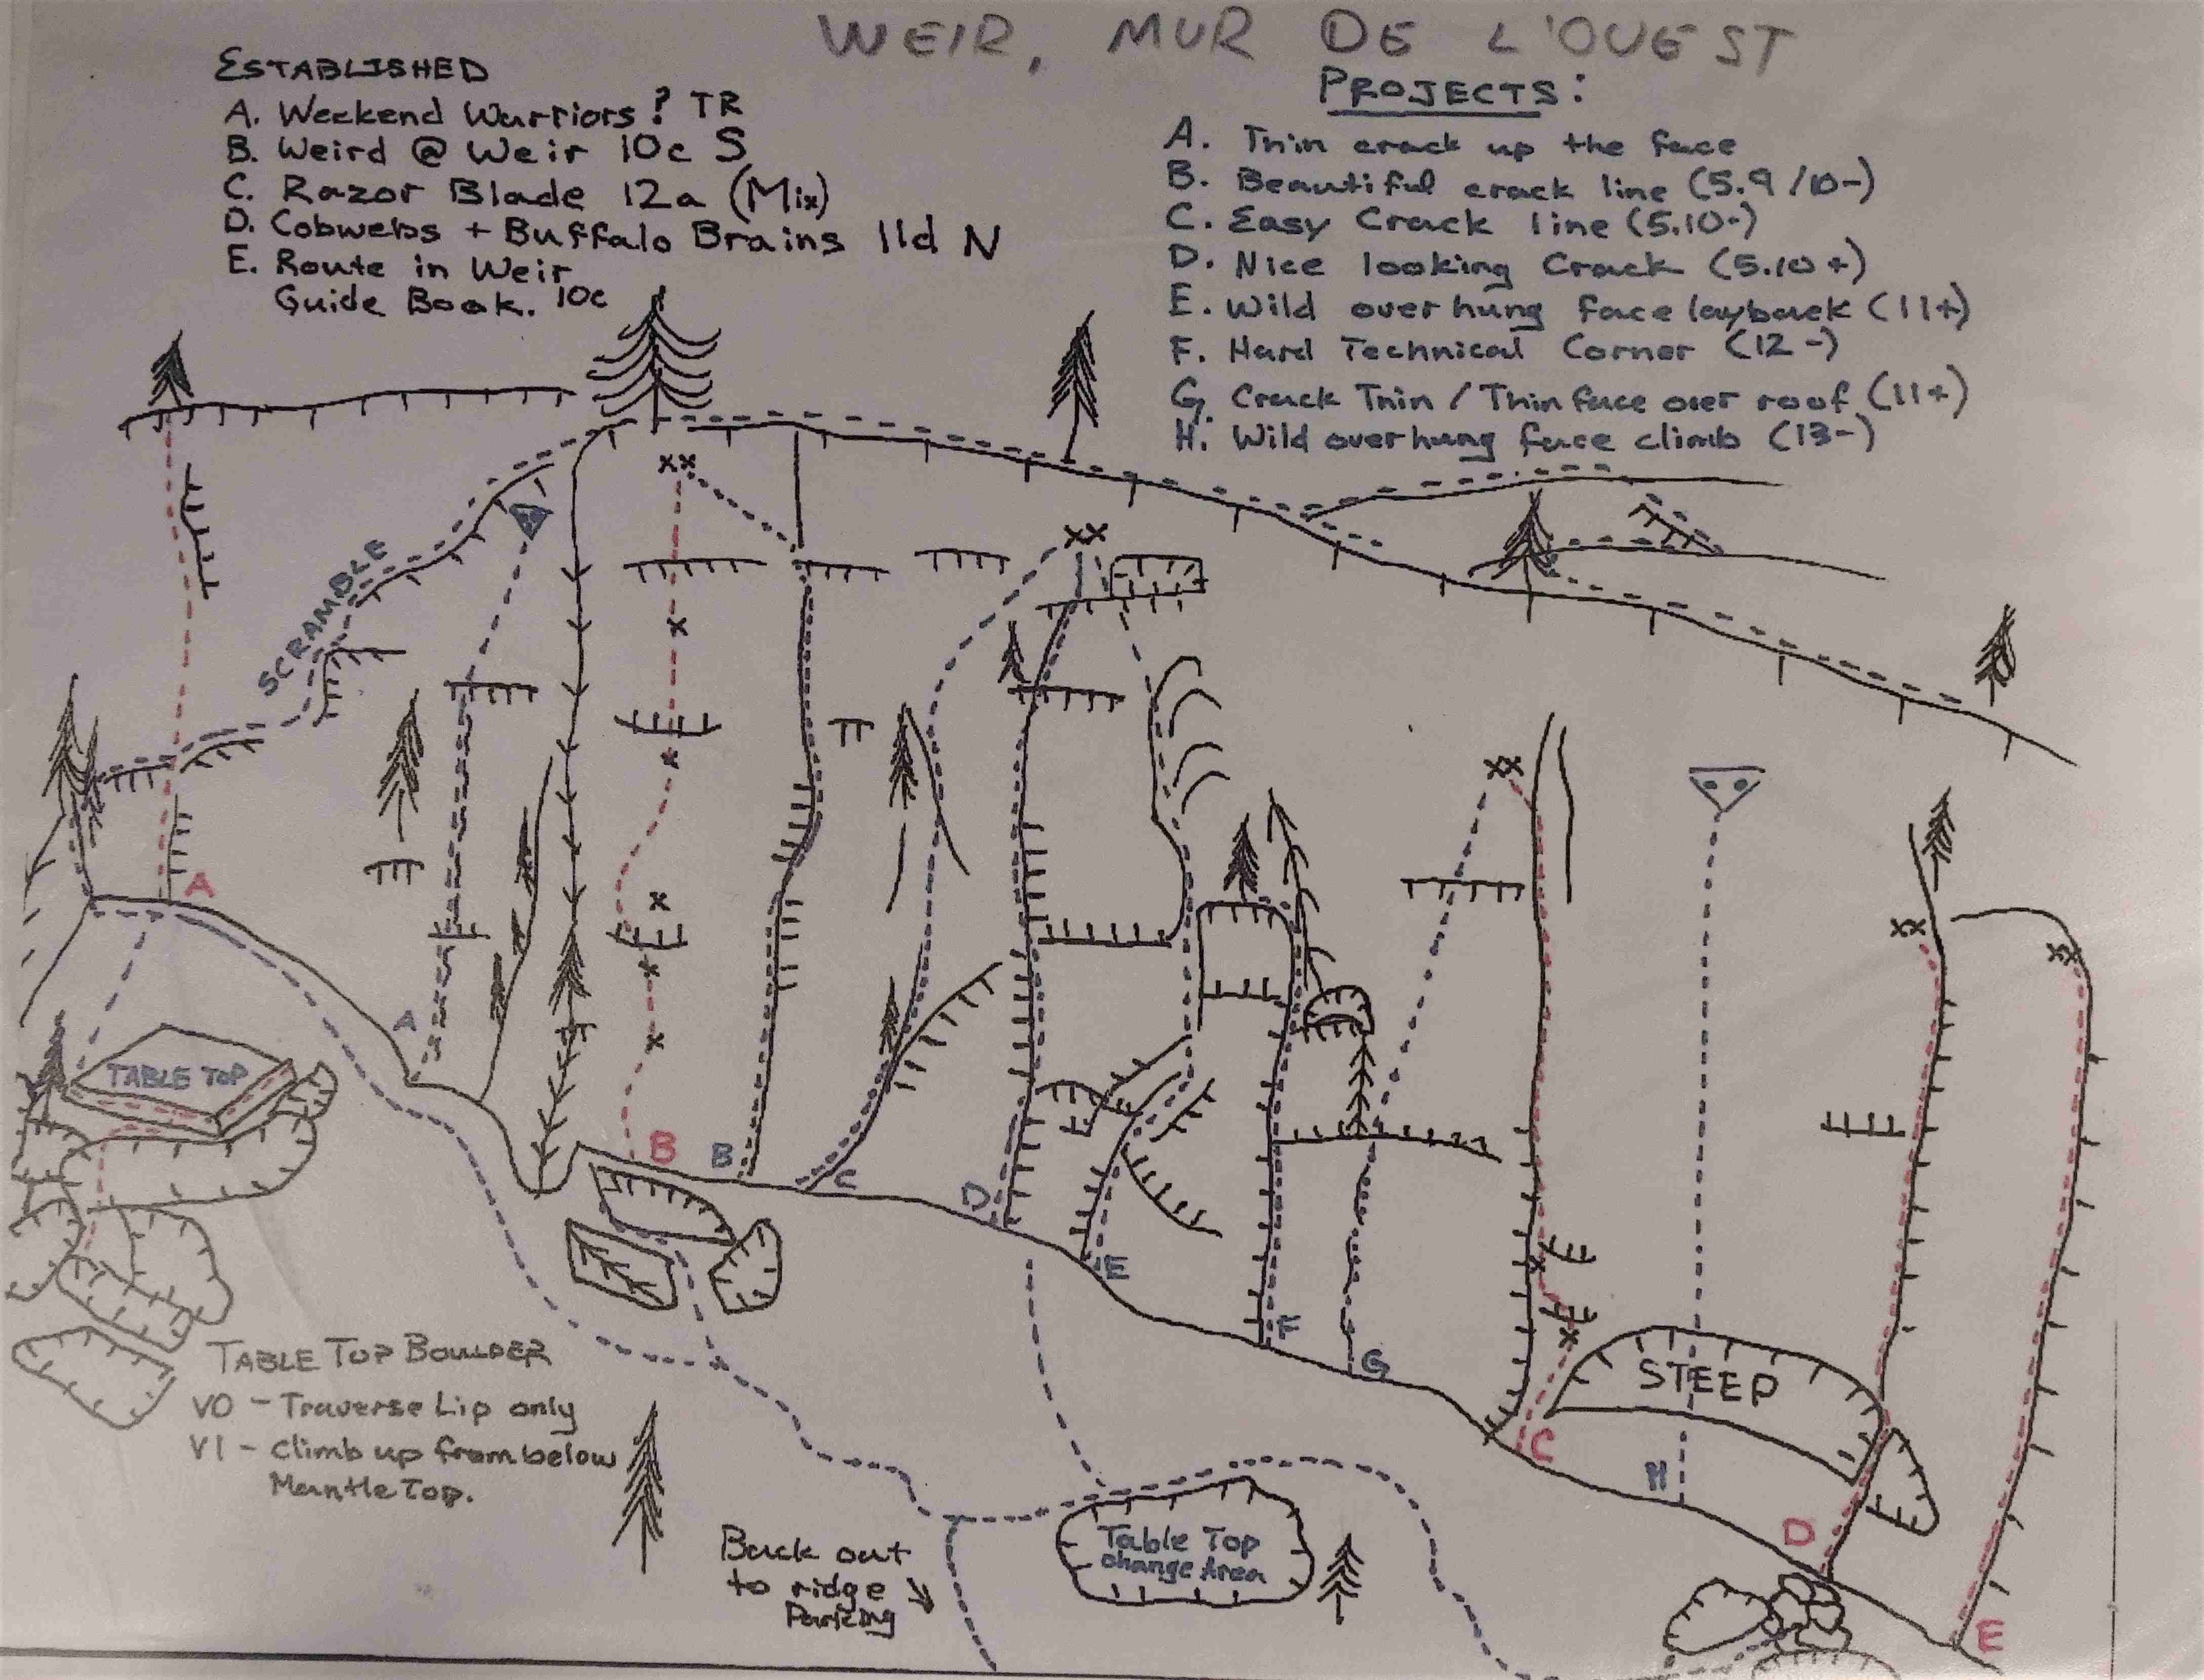 WEIR, MUR DE L'OUEST
ESTABLISHED
A. Weekend Warriors ? TR
B. Weird @ Weir 10c S
C. Razor Blade 12a (Mix)
D. Cobwebs + Buffalo Brains 11d N
E. Route in Weir
Guide Book. 10c
PROJECTS:
A. Thin crack up the face
B. Beautiful crack line (5.9/10-)
C. Easy Crack line (5.10-)
D. Nice looking Crack (5.10+)
E. Wild overhung face layback (11+)
F. Hard Technical Corner (12-)
G. Crack Thin / Thin face over roof (11+)
H. Wild overhung face climb (13-)
xx
SCRAMBLE
xx
xx
xx
xx
A
A
TABLE TOP
B
B
C
D
E
F
G
STEEP
C
H
D
E
TABLE TOP BOULDER
V0 - Traverse Lip only
V1 - Climb up from below
Mantle Top.
Back out
to ridge
Parking
Table Top
change Area